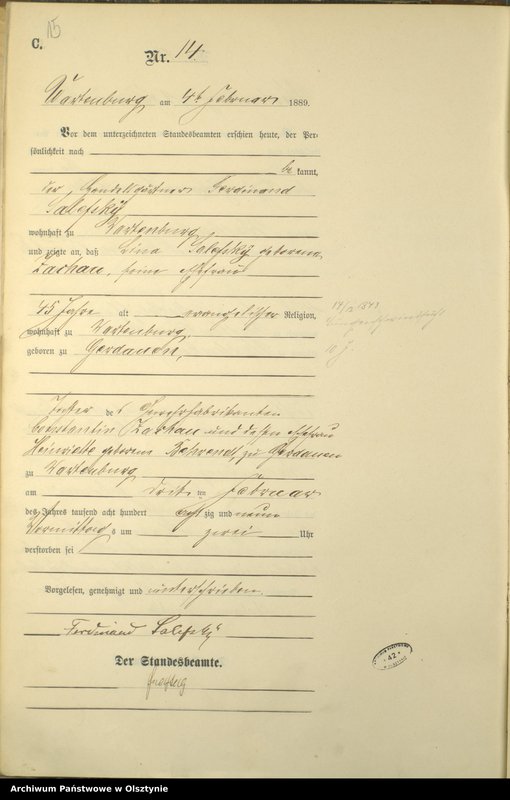 15
C.
Nr. 14
Wartenburg am 4t Februar 1889.
Vor dem unterzeichneten Standesbeamten erschien heute, der Per-
sönlichkeit nach
be kannt,
der Handelsgärtner Ferdinand
Salefsky
wohnhaft zu Wartenburg
und zeigte an, daß Lina Salefsky geborene
Zachau, seine Ehefrau
45 Jahre alt evangelischer Religion,
wohnhaft zu Wartenburg,
geboren zu Gerdauen,
Tochter des
Constantin Zachau und dessen Ehefrau
Heinriette geborene Behrendt, zu Gerdauen
zu Wartenburg
am dritten Februar
des Jahres tausend acht hundert achtzig und neun
Vormittags um zwei Uhr
verstorben sei
Vorgelesen, genehmigt und unterschrieben
Ferdinand Salefsky
Der Standesbeamte.
42
Archiwum Państwowe w Olsztynie